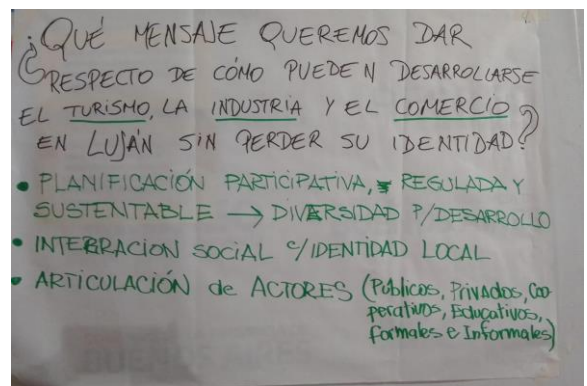 ¿QUÉ MENSAJE QUEREMOS DAR
RESPECTO DE CÓMO PUEDEN DESARROLLARSE
EL TURISMO, LA INDUSTRIA Y EL COMERCIO
EN LUJÁN SIN PERDER SU IDENTIDAD?
• PLANIFICACIÓN PARTICIPATIVA, REGULADA Y
SUSTENTABLE → DIVERSIDAD P/DESARROLLO
• INTEGRACIÓN SOCIAL C/IDENTIDAD LOCAL
• ARTICULACIÓN de ACTORES (Públicos, Privados, Coo
perativos, Educativos,
formales e Informales)